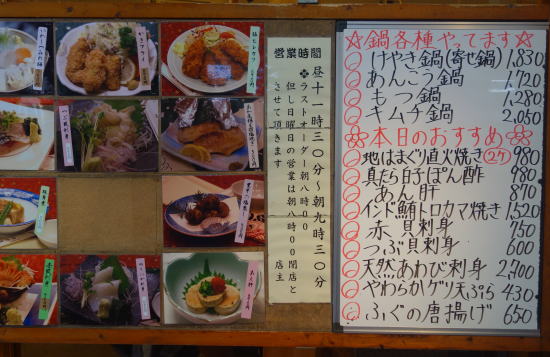 営業時間
昼十一時三〇分〜朝九時三〇分
❖ラストオーダー朝八時〇〇
但し日曜日の営業は朝八時〇〇閉店と
させて頂きます
店主
☆鍋各種やってます☆
けやき鍋(寄せ鍋) 1,830
あんこう鍋 1,720
もつ鍋 1,280
キムチ鍋 2,050
本日のおすすめ
地はまぐり直火焼き 2ケ 980
真たら白子ぽん酢 980
あん肝 870
インド鮪トロカマ焼き 1,520
赤貝刺身 750
つぶ貝刺身 600
天然あわび刺身 2,700
やわらかゲソ天ぷら 430
ふぐの唐揚げ 650
カキフライ